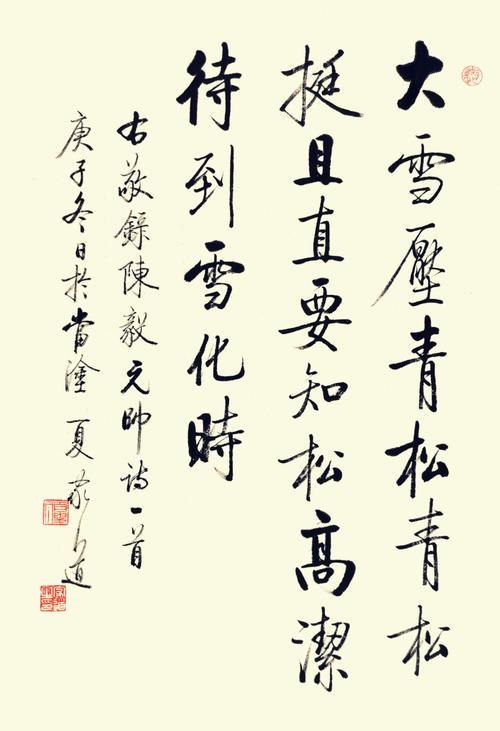 大雪壓青松青松
挺且直要知松高潔
待到雪化時
右敬錄陳毅元帥詩一首
庚子冬日於當塗夏家道